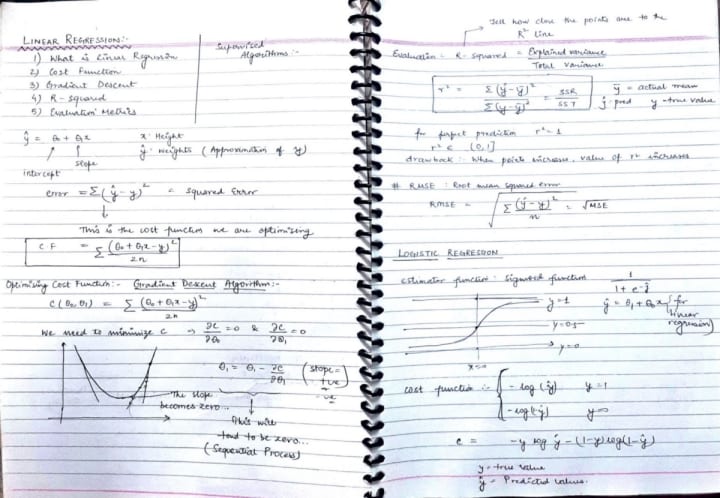 LINEAR REGRESSION:-
1) What is Linear Regression
2) Cost Function
3) Gradient Descent
4) R-squared
5) Evaluation Metrics
Supervised
Algorithms:-
ŷ = θ₀ + θ₁x
x: Height
ŷ: weights (Approximation of y)
slope
intercept
error = Σ(ŷ - y)² = squared Error
This is the cost function we are optimising
C.F = Σ (θ₀ + θ₁x - y)² / 2n
Optimising Cost Function:- Gradient Descent Algorithm:-
C(θ₀, θ₁) = Σ (θ₀ + θ₁x - y)² / 2n
We need to minimize C → ∂C/∂θ₀ = 0 & ∂C/∂θ₁ = 0
θ₁ = θ₁ - ∂C/∂θ₁ (slope = +ve
-ve
The slope
becomes zero...
This will
tend to be zero...
(Sequential Process)
Tell how close the points are to the
R² line
Evaluation:- R-squared = Explained variance / Total variance
r² = Σ(ŷ - ȳ)² / Σ(y - ȳ)² = SSR / SST
ȳ = actual mean
ŷ: pred y = true value
for perfect prediction r² = 1
r² ∈ [0,1]
drawback:- When points increase, value of r² increases
# RMSE: Root mean squared error
RMSE = √(Σ(ŷ - y)² / n) = √MSE
LOGISTIC REGRESSION
estimator function: Sigmoid function 1 / 1 + e^-ŷ
ŷ = θ₁ + θ₀x (for
linear
regression)
y=1
y=0.5
y=0
x=0
cost function:- { -log(ŷ) y=1
-log(1-ŷ) y=0
c = -y log ŷ - (1-y) log(1-ŷ)
y = true value
ŷ = Predicted values.